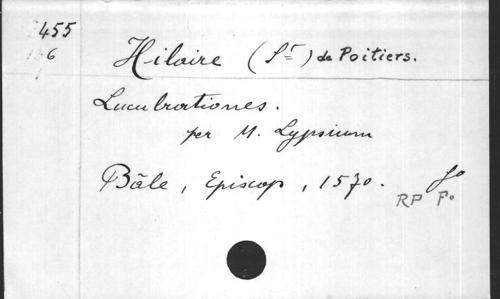 455
6
Hilaire (St) de Poitiers.
Lucubrationes.
per M. Lypsium
Bâle, Episcop, 1570. fo
RP Fo